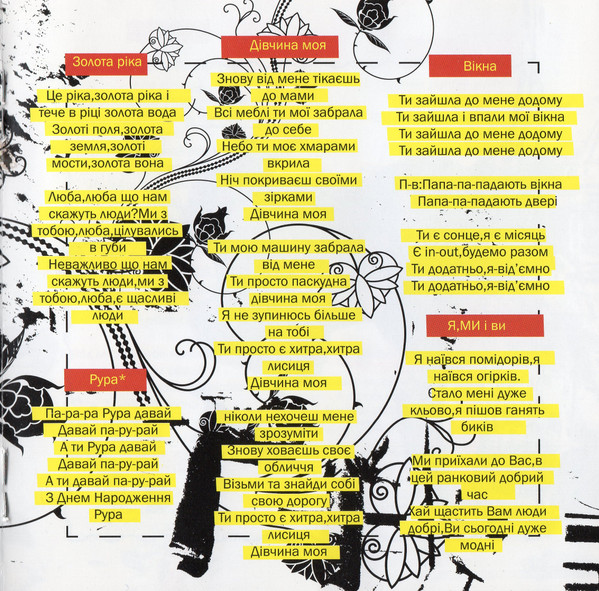 Золота ріка
Це ріка,золота ріка і
тече в ріці золота вода
Золоті поля,золота
земля,золоті
мости,золота вона
Люба,люба що нам
скажуть люди?Ми з
тобою,люба,цілувались
в губи
Неважливо що нам
скажуть люди,ми з
тобою,люба,є щасливі
люди
Рура*
Па-ра-ра Рура давай
Давай па-ру-рай
А ти Рура давай
Давай па-ру-рай
А ти давай па-ру-рай
З Днем Народження
Рура
Дівчина моя
Знову від мене тікаєшь
до мами
Всі меблі ти мої забрала
до себе
Небо ти моє хмарами
вкрила
Ніч покриваєш своїми
зірками
Дівчина моя
Ти мою машину забрала
від мене
Ти просто паскудна
дівчина моя
Я не зупинюсь більше
на тобі
Ти просто є хитра,хитра
лисиця
Дівчина моя
ніколи нехочеш мене
зрозуміти
Знову ховаєшь своє
обличчя
Візьми та знайди собі
свою дорогу
Ти просто є хитра,хитра
лисиця
Дівчина моя
Вікна
Ти зайшла до мене додому
Ти зайшла і впали мої вікна
Ти зайшла до мене додому
Ти зайшла до мене додому
П-в:Папа-па-падають вікна
Папа-па-падають двері
Ти є сонце,я є місяць
Є in-out,будемо разом
Ти додатньо,я-від'ємно
Ти додатньо,я-від'ємно
Я,МИ і ви
Я наївся помідорів,я
наївся огірків.
Стало мені дуже
кльово,я пішов ганять
биків
Ми приїхали до Вас,в
цей ранковий добрий
час
Хай щастить Вам люди
добрі,Ви сьогодні дуже
модні